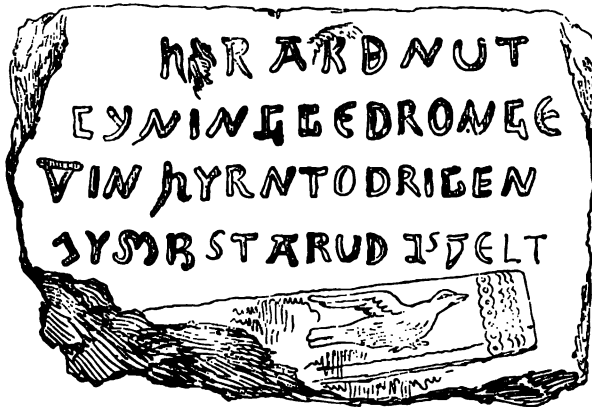 HER ARDNUT
CYNINGGEDRONGE
VIN HYRNTODRIGEN
JYMBSTARUD ISVELT